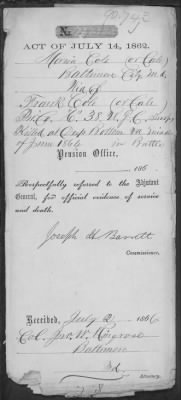 90.742
No.
ACT OF JULY 14, 1862.
Maria Cole (or Cale)
Baltimore City Md.
Wid of
Frank Cole (or Cale)
Killed at
of June 1864 in Battle
Pension Office,
186
Respectfully referred to the Adjutant
General, for official evidence of service
and death.
Joseph H. Barrett
Commissioner.
Received, July 2, 1866
Col. Jno. W.
Baltimore
Md.
Attorney.